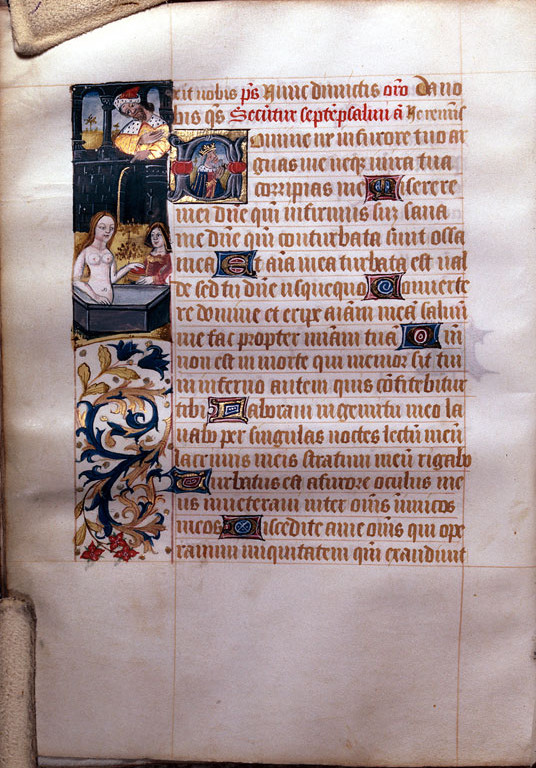 rit nobis ps Nunc dimictis oro Da no
bis qs Secuntur septē psalmi ā Ne remīs
Domine ne in furore tuo ar
guas me neqȝ in ira tua
corripias me Miserere
mei dn̄e qm̄ infirmus sum sana
me dn̄e qm̄ conturbata sunt ossa
mea Et aīa mea turbata est val
de sed tu dn̄e usquequo Conuerte
re domine et eripe aīam meā saluū
me fac propter mīam tuā Qm̄
non est in morte qui memor sit tui
in inferno autem quis cōfitebitur
tibi Laboraui in gemitu meo la
uabo per singulas noctes lectū meū
lacrimis meis stratum meū rigabo
Turbatus est a furore oculus me
us inueteraui inter om̄s inimicos
meos Discedite a me om̄s qui ope
ramini iniquitatem qm̄ exaudiuit